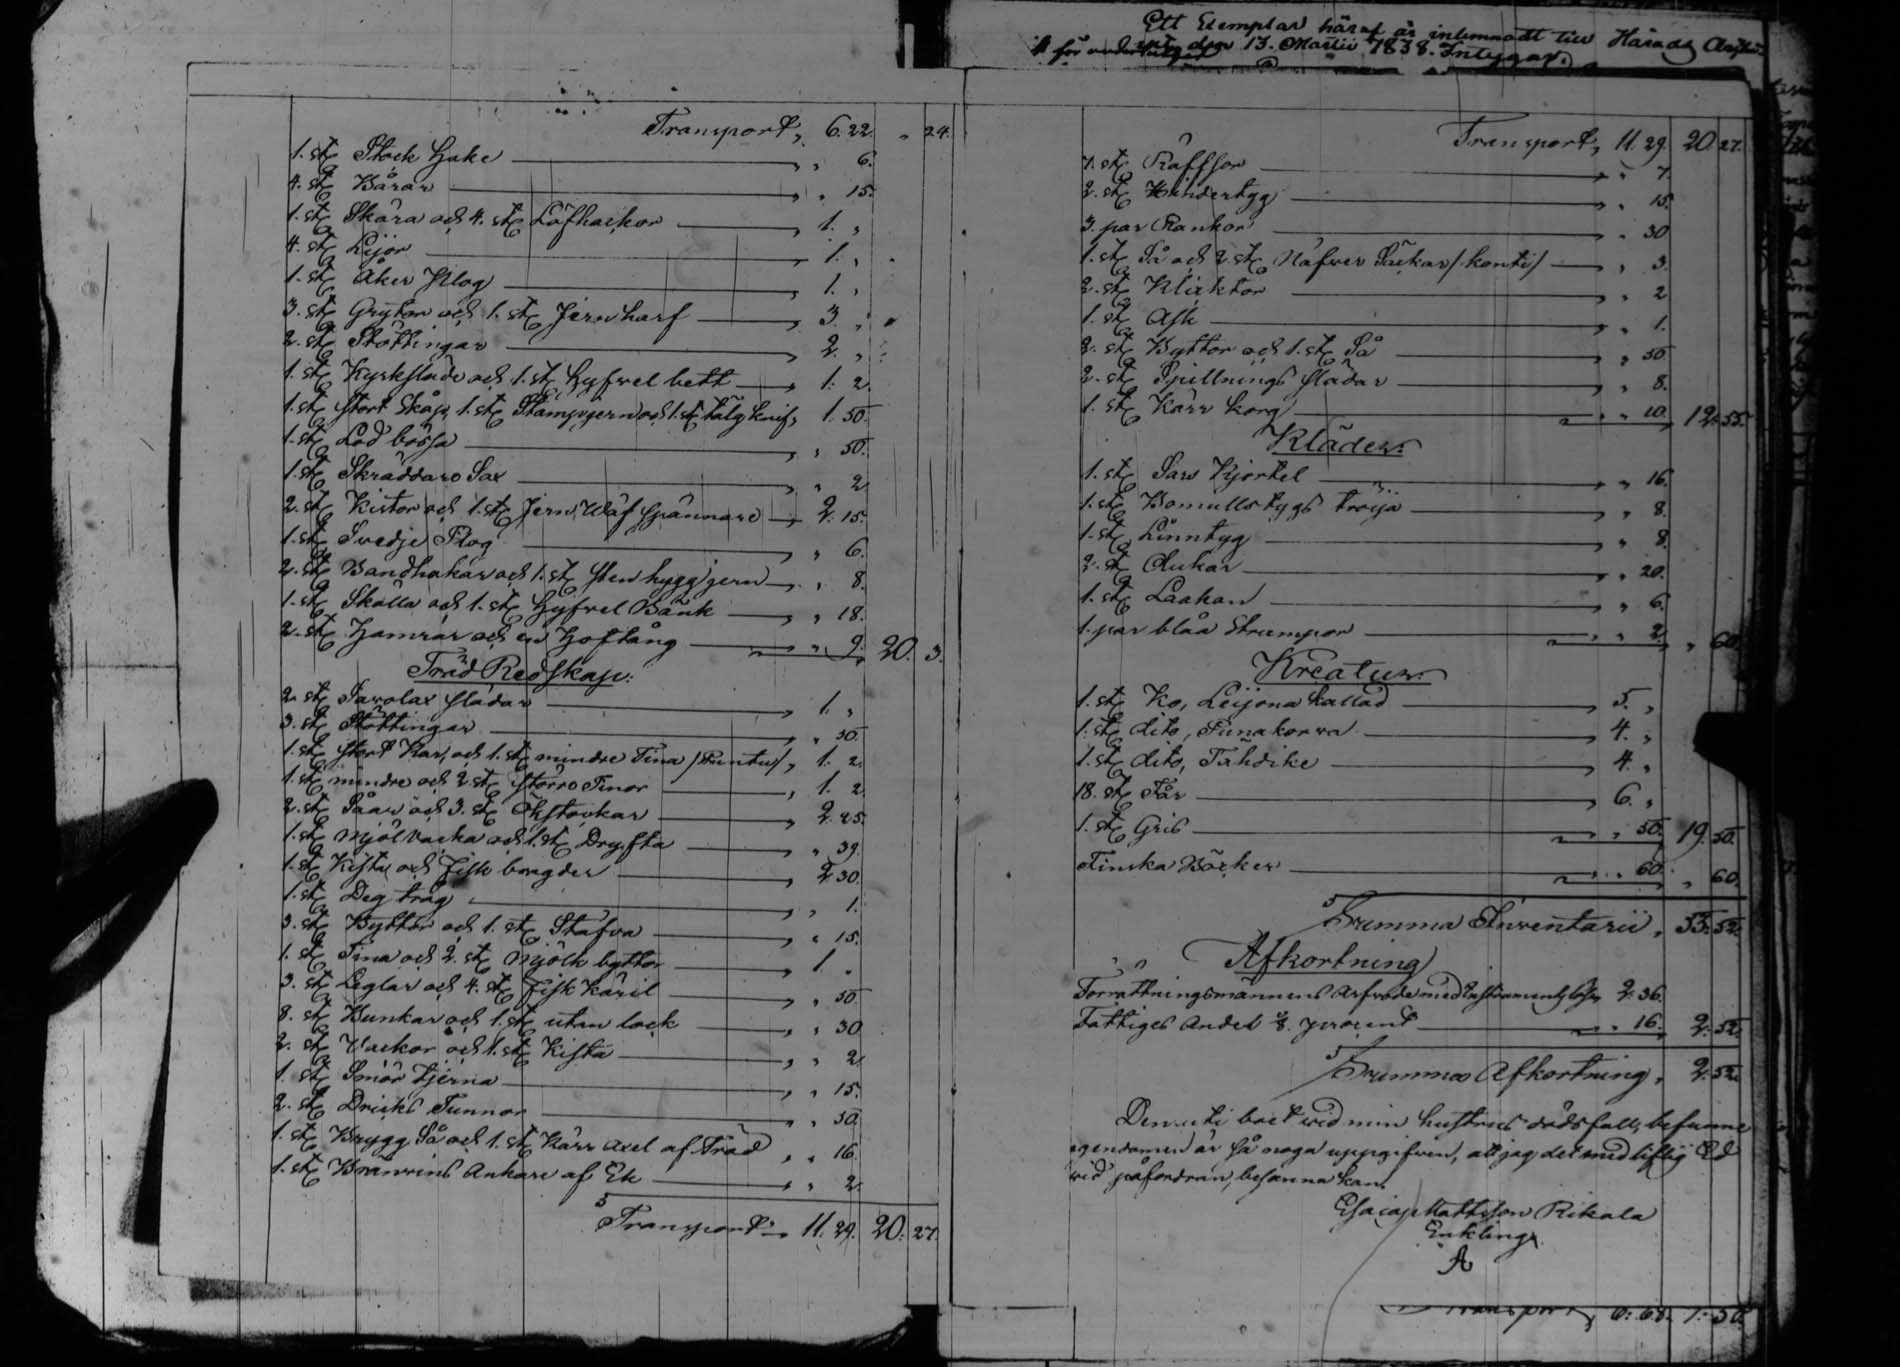 Transport, 6. 22. " 24.
1. st. Stock Hake " 6.
4. st. Bårar " 15.
1. st. Skära och 4. st. Löfhackor 1. "
4. st. Lijor 1. "
1. st. Åker Plog 1. "
3. st. Grytor och 1. st. Jernharf 3. "
2. st. Stöttingar 2. "
1. st. Kyrkslade och 1. st. Hyfvel bett 1. 2.
1. st. stort Skåp, 1. st. Stampjern och 1. st. tälg knif, 1. 50.
1. st. Lod bössa " 50.
1. st. Skräddare Sax " 2
2. st. Kistor och 1. st. Jern Wäf spännare 2. 15.
1. st. Svedje Plog " 6.
2. st. Bandhakar och 1. st. Stenhygg jern " 8.
1. st. Skålla och 1. st. Hyfvel Bänk " 18.
2. st. Hamrar och en Hoftång " 9. 20. 3.
Träd Redskap:
2. st. Savolax sladar 1. "
3. st. Stöttingar " 30.
1. st. stort Kar, och 1. st. mindre Tina /Puntu/, 1. 2.
1. st. mindre och 2. st. större Tinor 1. 2.
2. st. Såar och 3. st. Ökstockar 2. 25.
1. st. mjölvacka och 1. st. Dryfta " 39.
1. st. Kista och Fisk bragder 2. 30.
1. st. Deg tråg " 1.
3. st. Byttor och 1. st. Stäfva " 15.
1. st. Tina och 2. st. mjölk byttor 1. "
3. st. Leglar och 4. st. Fisk Käril " 50.
8. st. Bunkar och 1. st. utan lock " 30
2. st. Vackor och 1. st. Kista " 2
1. st. Smör tjerna " 15.
2. st. Dricks Tunnor " 30.
1. st. Brygg Så och 1. st. Kärr axel af Träd " 16.
1. st. Bränvins Ankare af Ek " 2.
Transport 11. 29. 20. 27.
Ett Exemplar häraf är inlemnadt till Härads
den 13. Martii 1838. Intygar.
Transport, 11. 29. 20. 27.
st. Räfssor " 7.
2. st. " 15.
3. par Rankor " 30
1. st. Så och 2. st. Näfver Säckar /konti/ " 3.
2. st. Kläktor " 2
1. st. Ask " 1.
2. st. Byttor och 1. st. Så " 50
2. st. Spillnings sladar " 8.
1. st. Kärr korg " 10. 12. 55.
Kläder.
1. st. Sars Kjortel " 16.
1. st. Bomullstygs tröija " 8.
1. st. Linntyg " 8.
2. st. Dukar " 20.
1. st. Laakan " 6.
1. par blåa Strumpor " 2. " 60.
Kreatur.
1. st. Ko, Leijona kallad 5. "
1. st. dito, Punakorva 4. "
1. st. dito, Tähdike 4. "
18. st. Får 6. "
1. st. Gris " 50. 19. 50.
Finska Böcker " 60. " 60.
Summa Inventarii, 53. 52.
Afkortning
Förrättningsmännens Arfvode med 2. 36.
Fattiges Andel 1/8. procent " 16. 2. 52.
Summa Afkortning, 2. 52.
Den uti boet wid min hustrus dödsfall, befunne
egendomen är så noga uppgifven, att jag det med liflig Ed
wid påfordran, besanna kan.
Esaias Mattsson Rikala
Enkling.
Transport, 6. 1. 50.